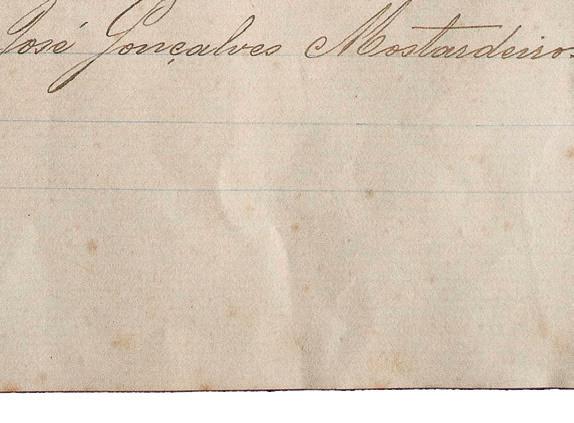 José Gonçalves Mostardeiro.